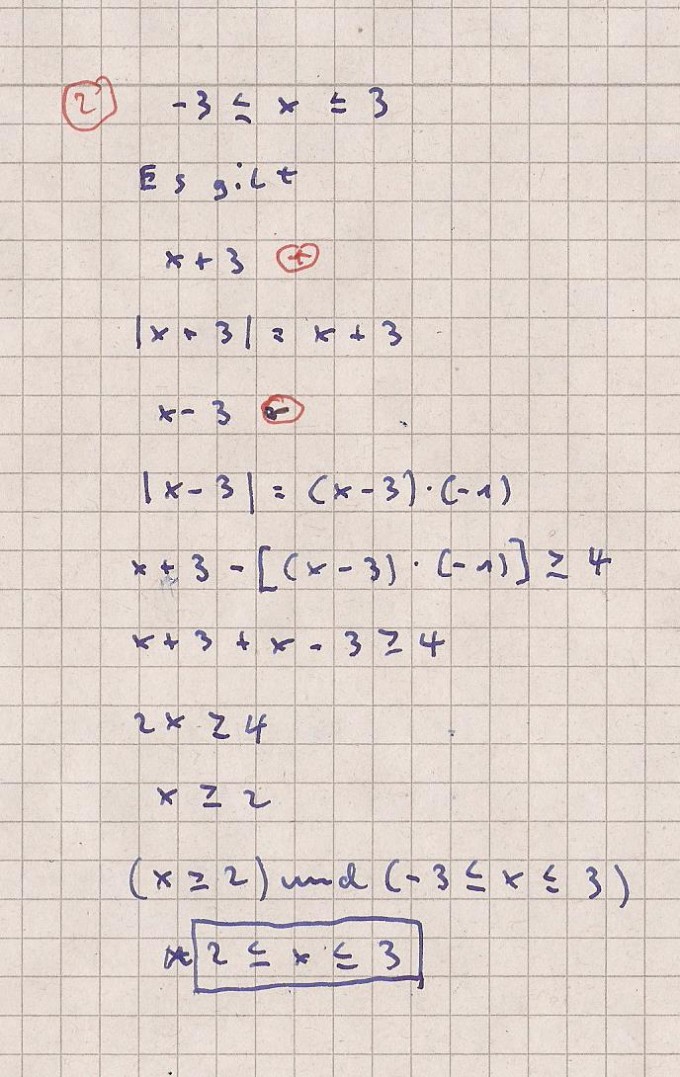 2) -3 ≤ x ≤ 3
Es gilt
x + 3 +
|x + 3| = x + 3
x - 3 -
|x - 3| = (x - 3) · (-1)
x + 3 - [(x - 3) · (-1)] ≥ 4
x + 3 + x - 3 ≥ 4
2x ≥ 4
x ≥ 2
(x ≥ 2) und (-3 ≤ x ≤ 3)
2 ≤ x ≤ 3